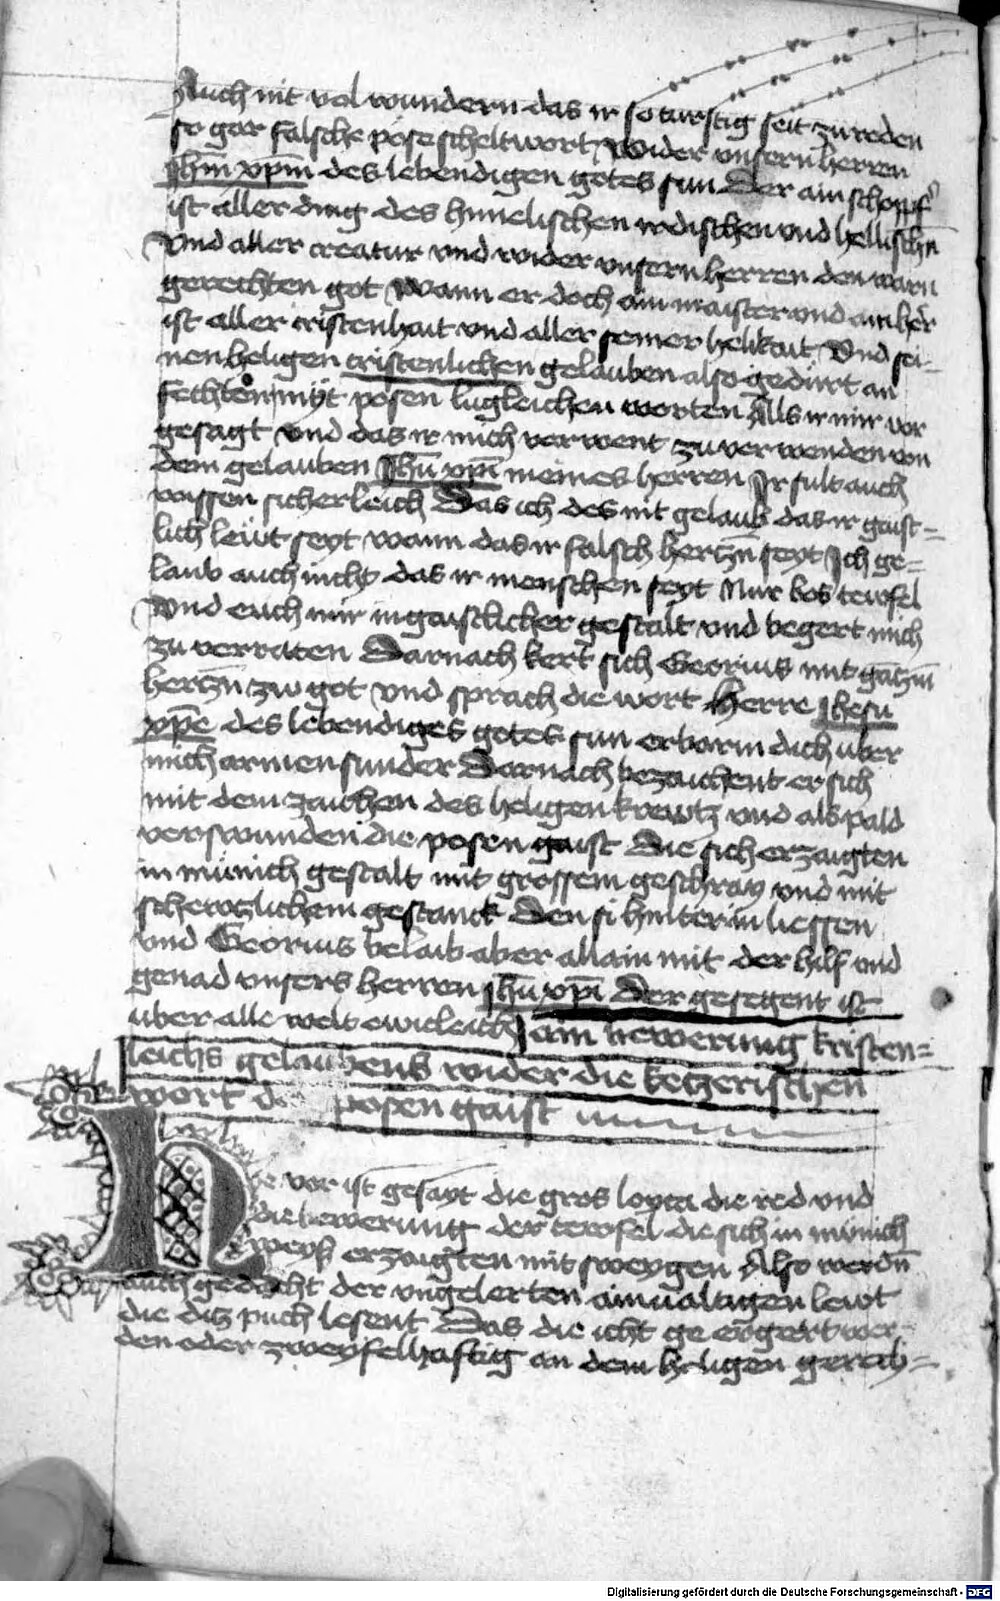 Auch nit vol wundern das ir so turstig seit zu reden
so gar falsche pöse scheltwort wider unsern herren
Jhm xpm des lebendigen gotes sun Der ain schopf
ist aller ding des himelischen irdischen und hellischn
Vnd aller creatur vnd wider vnsern herren den warn
gerechten got Wann er doch ain maister vnd ain her
ist aller cristenhait vnd aller seiner helikait Vnd sei-
nen heligen cristenlichen gelauben also gedürt an
fechten mÿt posen lugleichen worten Alls ir mir vor
gesagt vnd das ir mich verwent zu verwenden von
dem gelauben Jhu xpi meines herren Ir sult auch
wissen sicherleich Das ich des nit gelaub das ir gaist=
lich leüt seyt wann das ir falsch hertzn seyt Ich ge=
laub auch nicht das ir menschen seyt Nur bos tewfel
Vnd euch mir in gaistlicher gestalt vnd begert mich
zu verraten Darnach kert sich Georius mit gatzm
hertzn zw got vnd sprach die wort Herre Jhesu
xpe des lebendiges gotes sun erbarm dich uber
mich armen sunder Darnach bezaichent er sich
mit dem zaichen des heligen krewtz vnd als pald
verswunden die posen gaist Die sich erzaigten
in münich gestalt mit grossem geschray vnd mit
schewtzlichem gestanck Den si hinter in liessen
vnd Georius belaib aber allain mit der hilf vnd
genad vnsers herren Jhu xpi Der gesegent ist
uber alle welt ewicleich ain bewerung kristen=
leichs gelaubens wider die ketzerischen
wort d posen gaist
Hye vor ist gesayt die gros loyca die red vnd
die bewerung der tewfel die sich in münich
weys erzaigten mit sweygen Also werdn
auch gedacht der vngelerten ainualtigen lewt
die ditz puch lesent Das die icht ge ergert wer-
den oder zweyfelhaftig an dem heligen gerech=
Digitalisierung gefördert durch die Deutsche Forschungsgemeinschaft - DFG